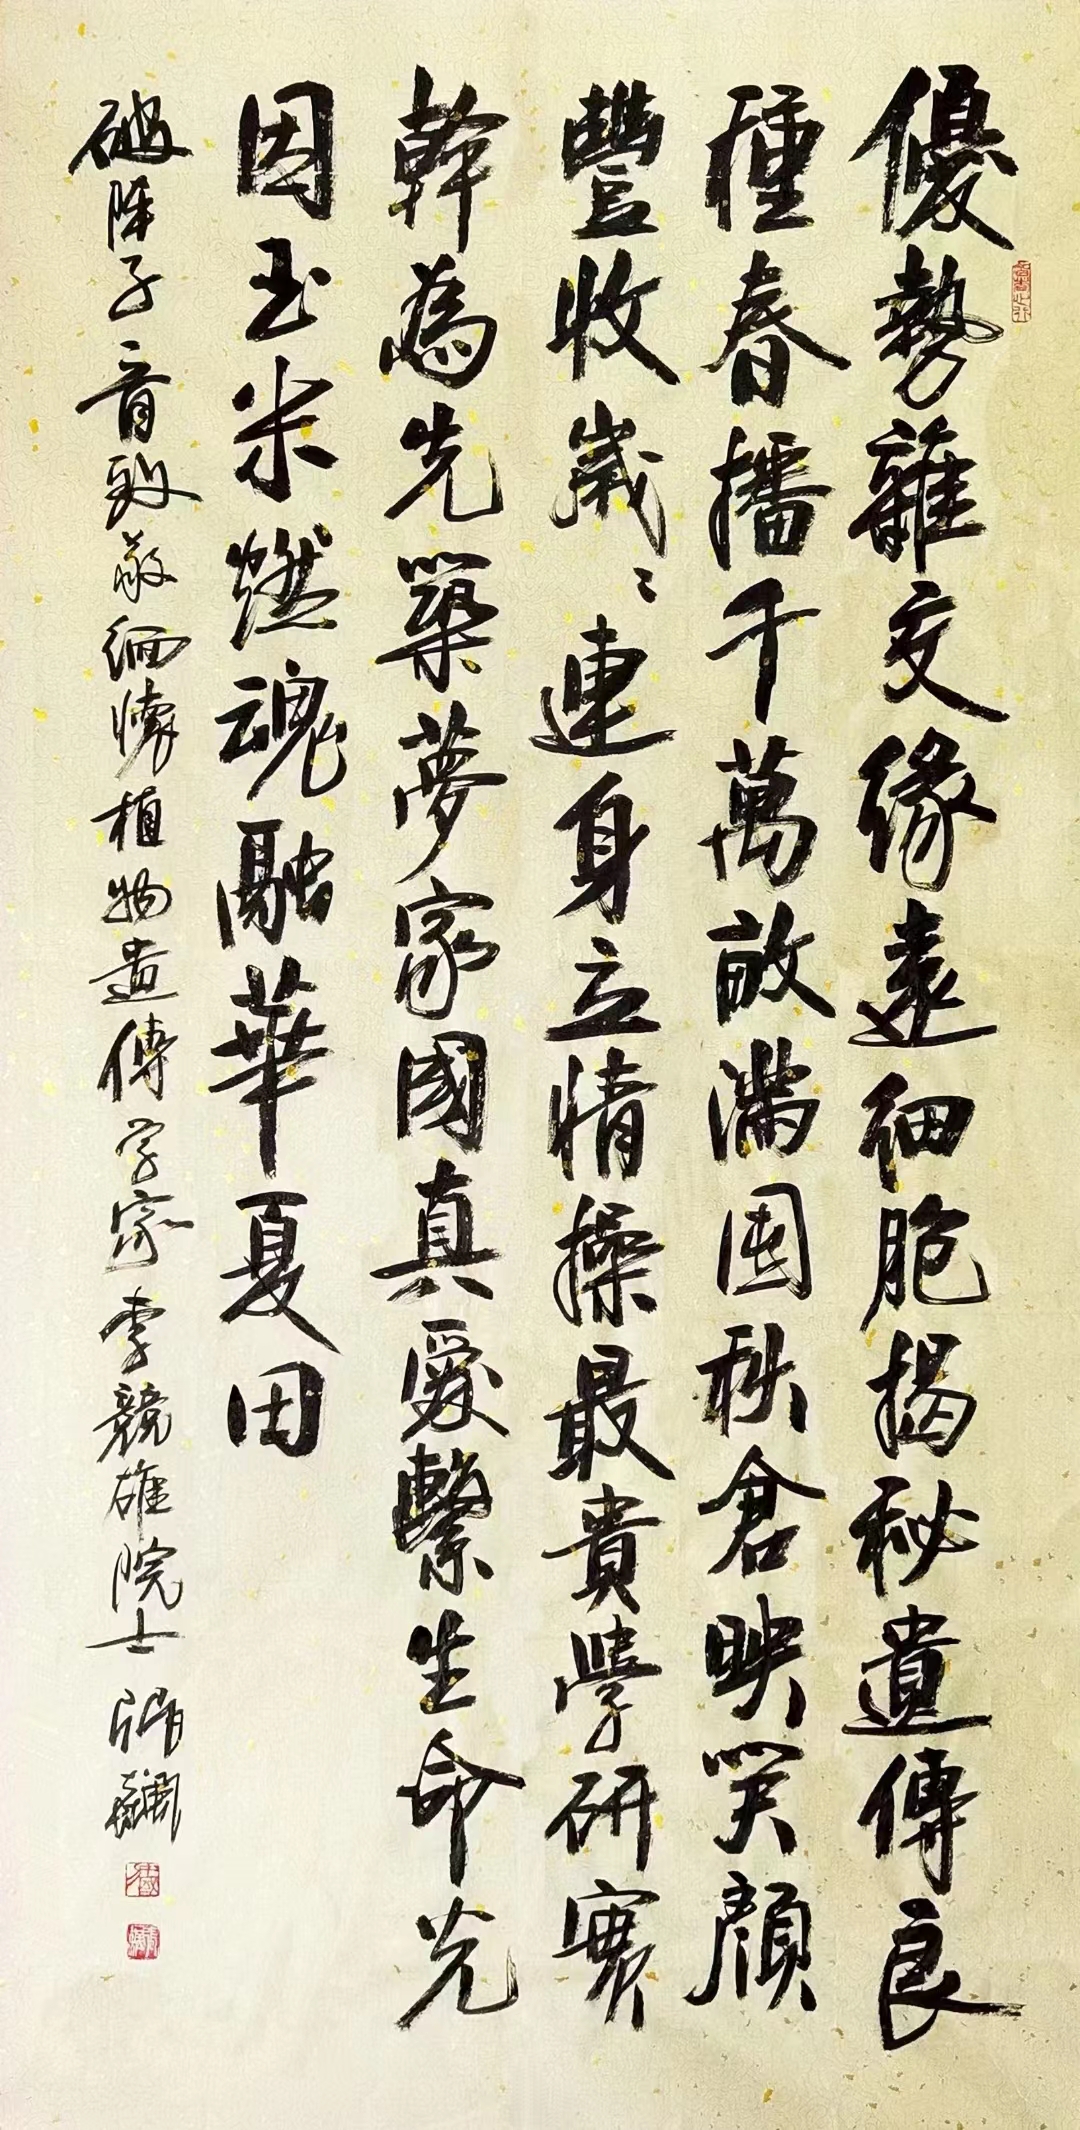 優勢雜交緣遠細胞揭秘遺傳良
種春播千萬畝滿秋倉映笑顏
豐收歲々連身立情操最貴學研實
幹為先築夢家國真愛繫生命光
因玉米燃魂融華夏田
破陣子音致敬緬懷植物遺傳学家李競雄院士